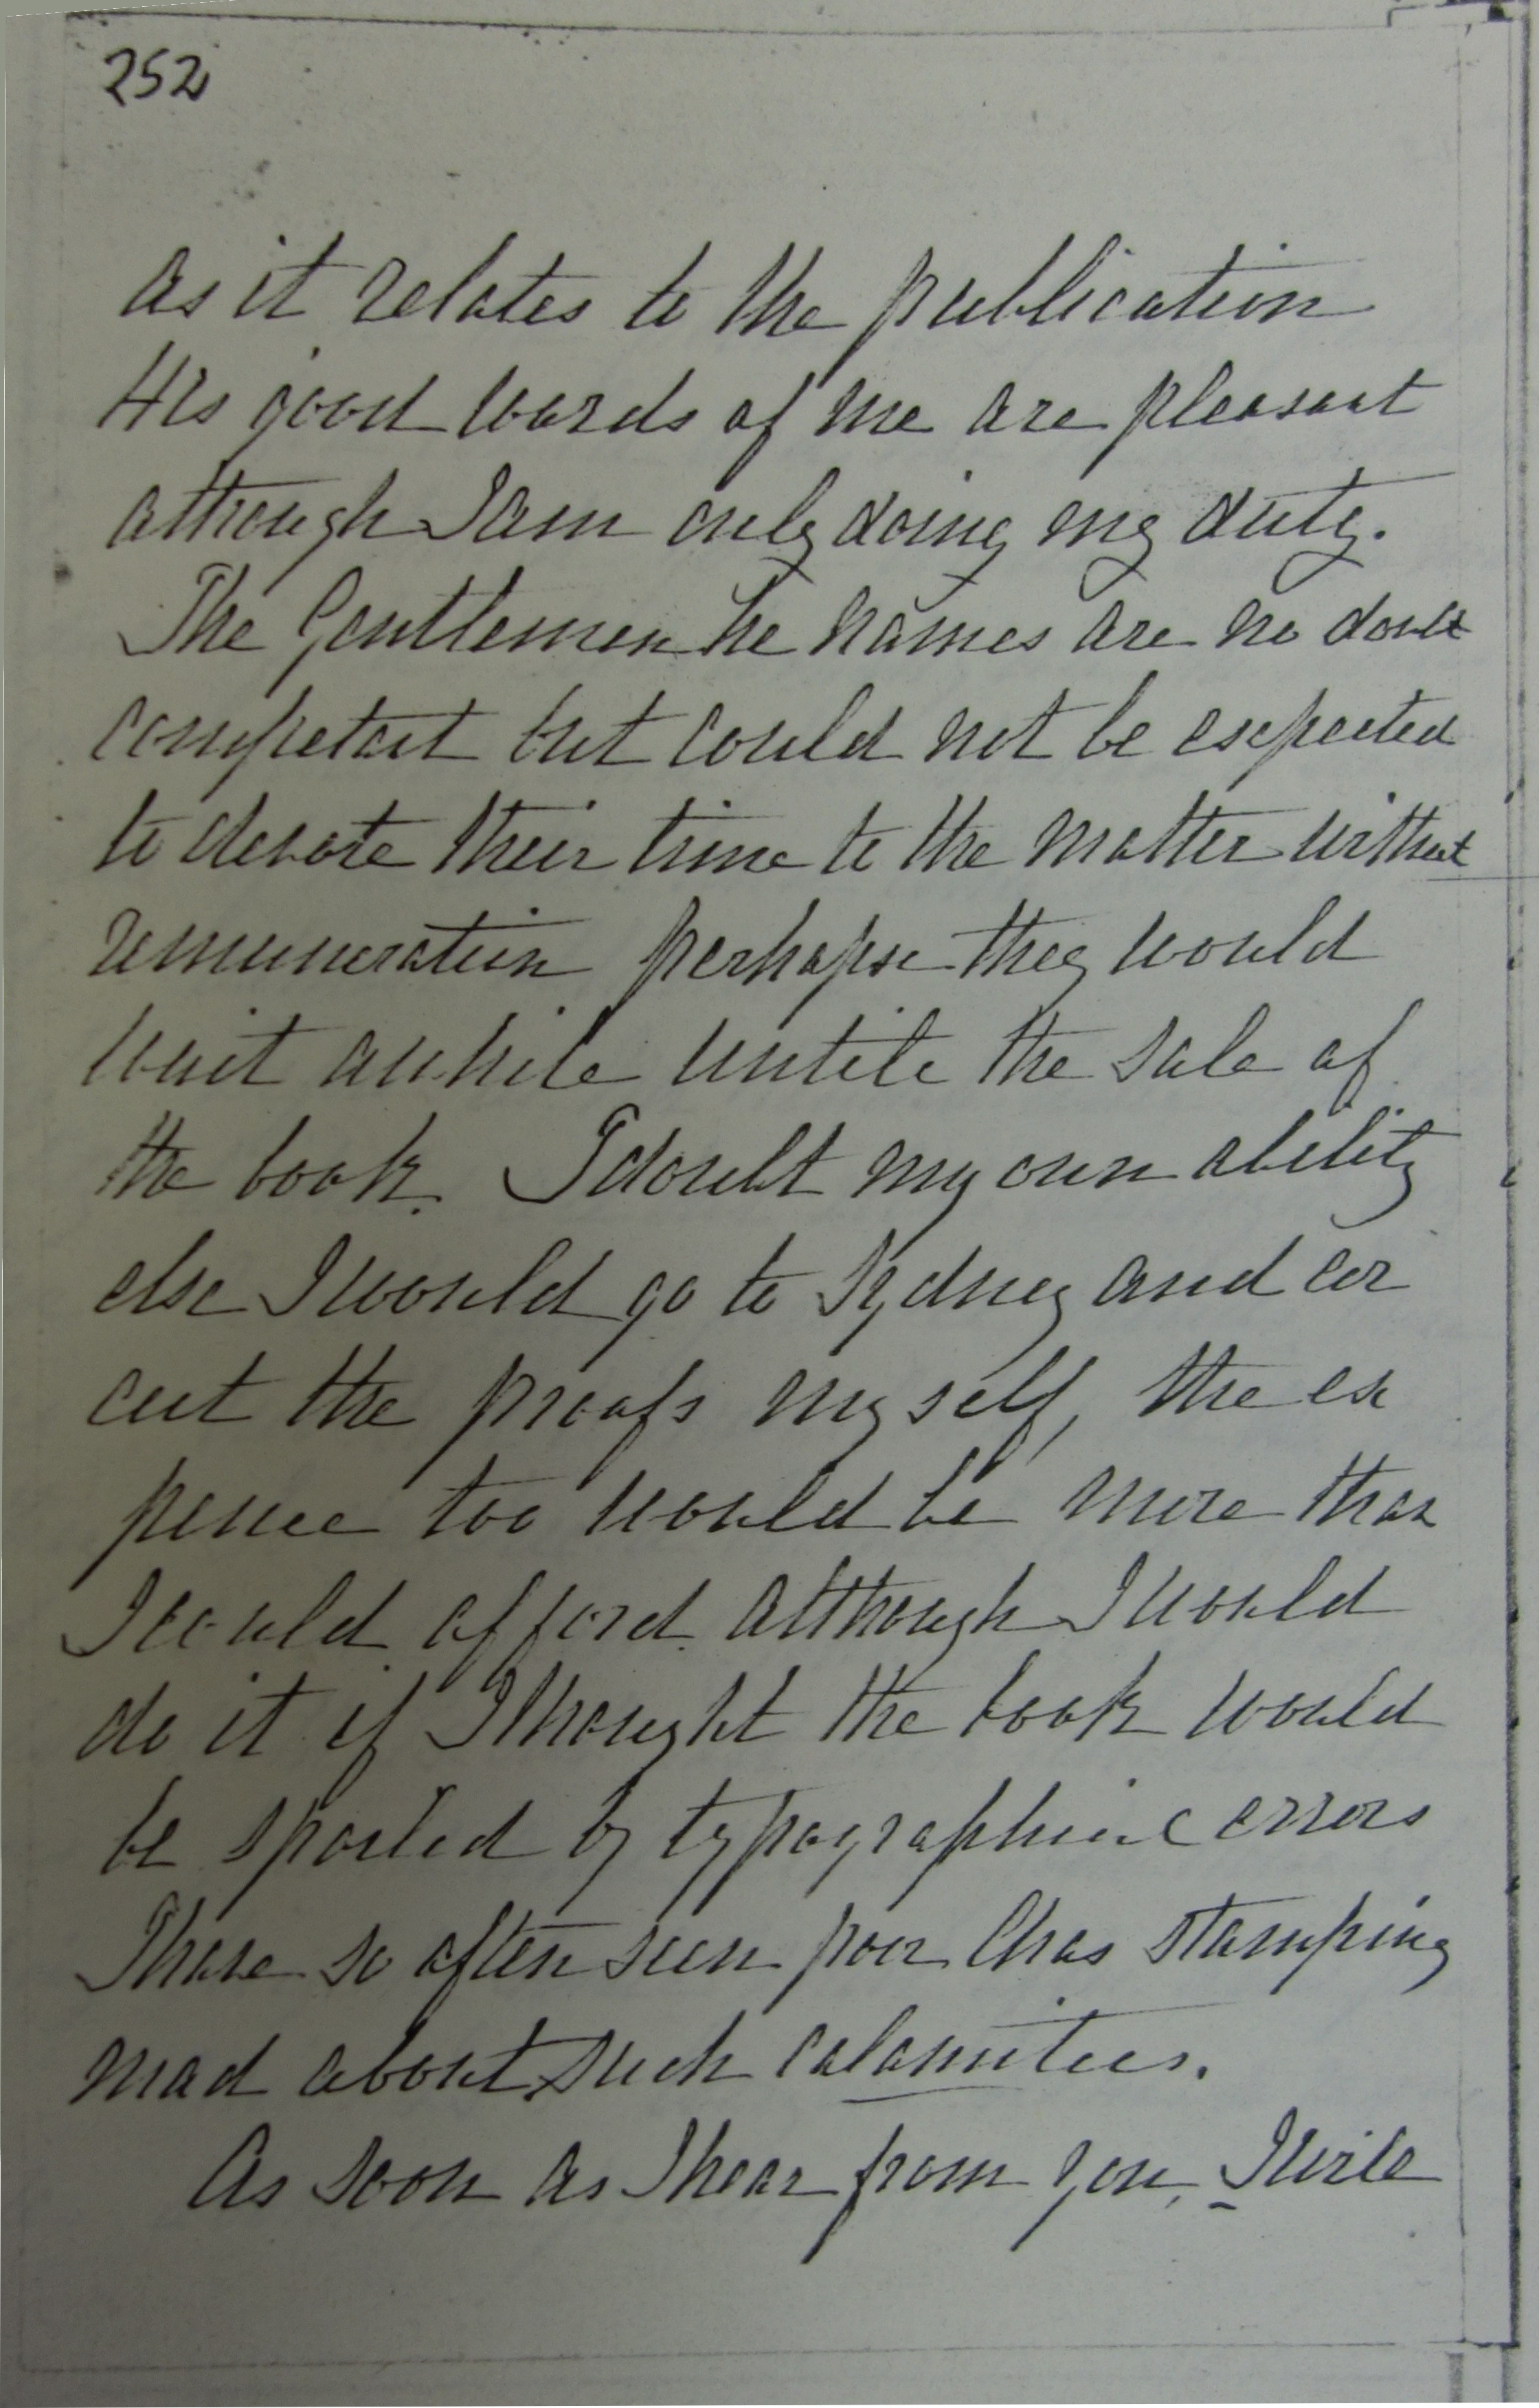 252
as it relates to the publication
His good words of me are pleasant
although I am only doing my duty.
The Gentlemen he names are no doubt
competent but could not be expected
to devote their time to the matter without
remuneration perhapse they would
wait awhile untile the sale of
the book. I doubt my own ability
else I would go to Sydney and cor
cect the proofs myself, the ex
pence too would be more than
I could afford although I would
do it if I thought the book would
be spoiled by typographic errors
I have so often seen poor Chas stamping
mad about such calamities.
As soon as I hear from you, I wile